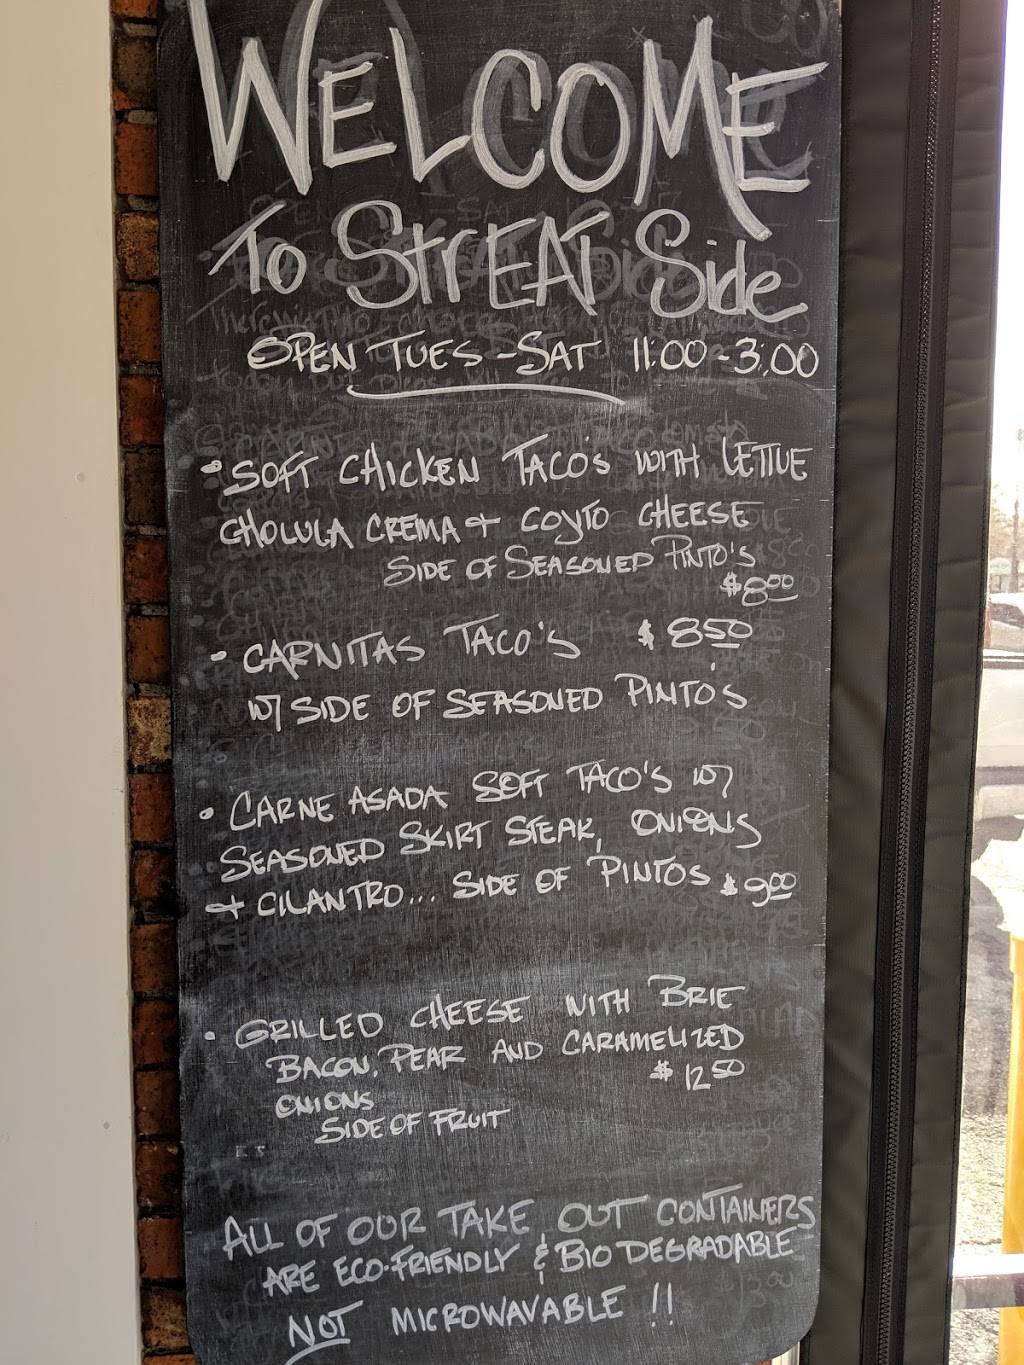 WELCOME
To StrEAT Side
OPEN TUES - SAT 11:00 - 3:00
• SOFT CHICKEN TACO'S WITH LETTUE
CHOLULA CREMA + COYTO CHEESE
SIDE OF SEASONED PINTO'S
$8.00
- CARNITAS TACO'S $8.50
W/ SIDE OF SEASONED PINTO'S
• CARNE ASADA SOFT TACO'S W/
SEASONED SKIRT STEAK, ONIONS
+ CILANTRO... SIDE OF PINTOS $9.00
• GRILLED CHEESE WITH BRIE
BACON, PEAR AND CARAMELIZED
ONIONS $12.50
SIDE OF FRUIT
ALL OF OUR TAKE OUT CONTAINERS
ARE ECO-FRIENDLY & BIO DEGRADABLE
NOT MICROWAVABLE !!